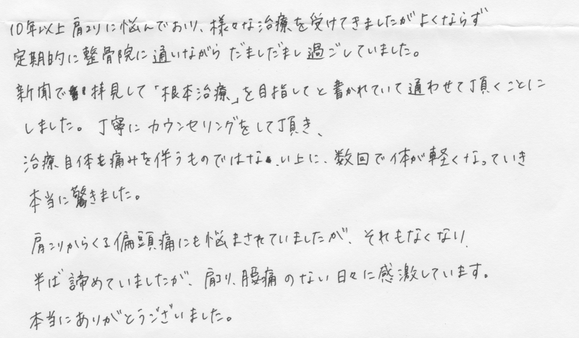 10年以上肩コリに悩んでおり、様々な治療を受けてきましたがよくならず
定期的に整骨院に通いながらだましだまし過ごしていました。
新聞で拝見して「根本治療」を目指してと書かれていて通わせて頂くことに
しました。丁寧にカウンセリングをして頂き、
治療自体も痛みを伴うものではない上に、数回で体が軽くなっていき
本当に驚きました。
肩コリからくる偏頭痛にも悩まされていましたが、それもなくなり、
半ば諦めていましたが、肩コリ、腰痛のない日々に感激しています。
本当にありがとうございました。